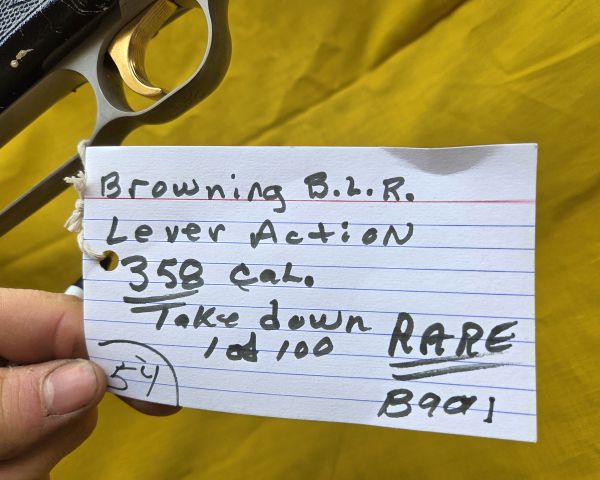 Browning B.L.R.
Lever Action
358 Cal.
Take down
1 of 100
RARE
54